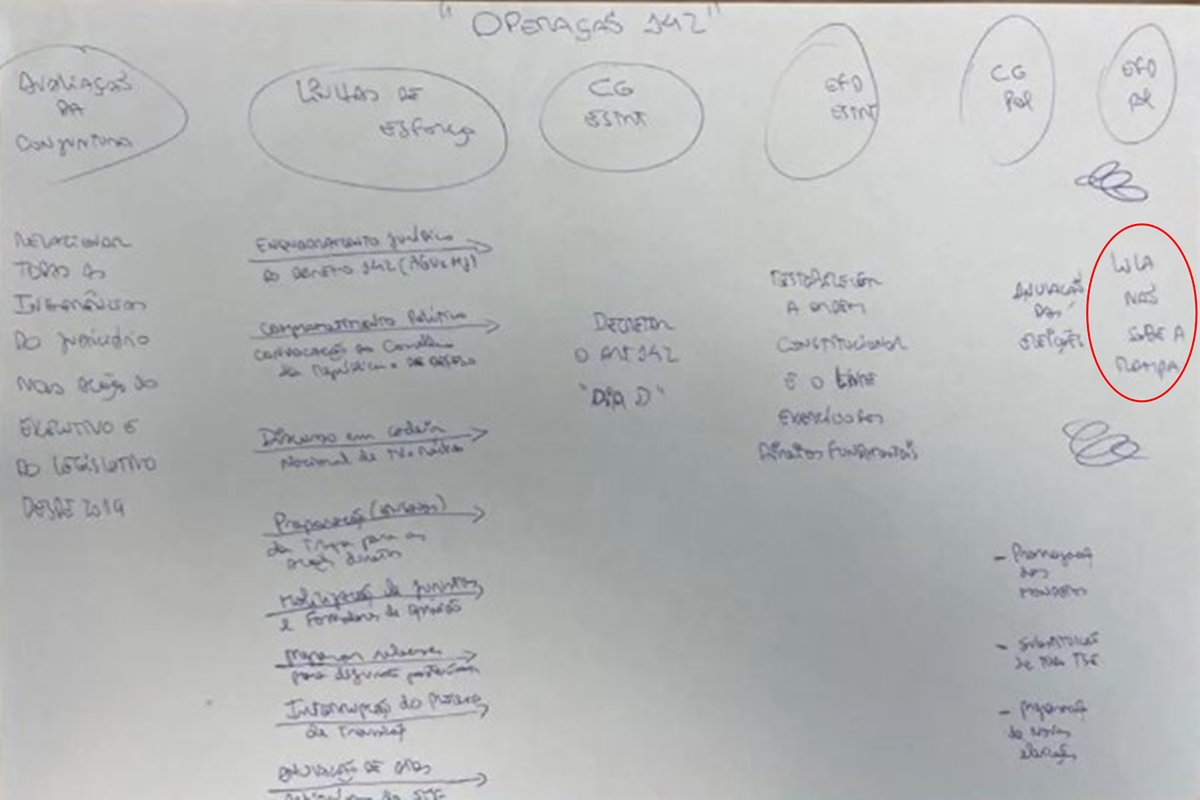 "OPERAÇÃO 142"
AVALIAÇÃO
DA
CONJUNTURA
LINHAS DE
ESFORÇO
CG
ESTRT
EFD
ESTRT
CG
POL
EFD
POL
RELACIONAR
TODAS AS
INGERÊNCIAS
DO JUDICIÁRIO
NAS AÇÕES DO
EXECUTIVO E
DO LEGISLATIVO
DESDE 2019
ENQUADRAMENTO JURÍDICO
DO DECRETO 142 (AGU e MJ)
Comprometimento Político
CONVOCAÇÃO do Conselho
da República e DE DEFESA
Discurso em cadeia
Nacional de TV e rádio
Preparação
da Tropa para as
ações diretas
Mobilização de juristas
e Formadores de opinião
Interrupção do Processo
de Transição
ANULAÇÃO DE ATOS
DECRETAR
O ART 142
"DIA D"
RESTABELECER
A ORDEM
CONSTITUCIONAL
E O LIVRE
EXERCÍCIO DOS
DIREITOS FUNDAMENTAIS
ANULAÇÃO
DAS
ELEIÇÕES
- Prorrogação
dos
MANDATOS
- SUBSTITUIÇÃO
DE TODO TSE
- Preparação
de Novas
eleições
LULA
NÃO
SOBE A
RAMPA